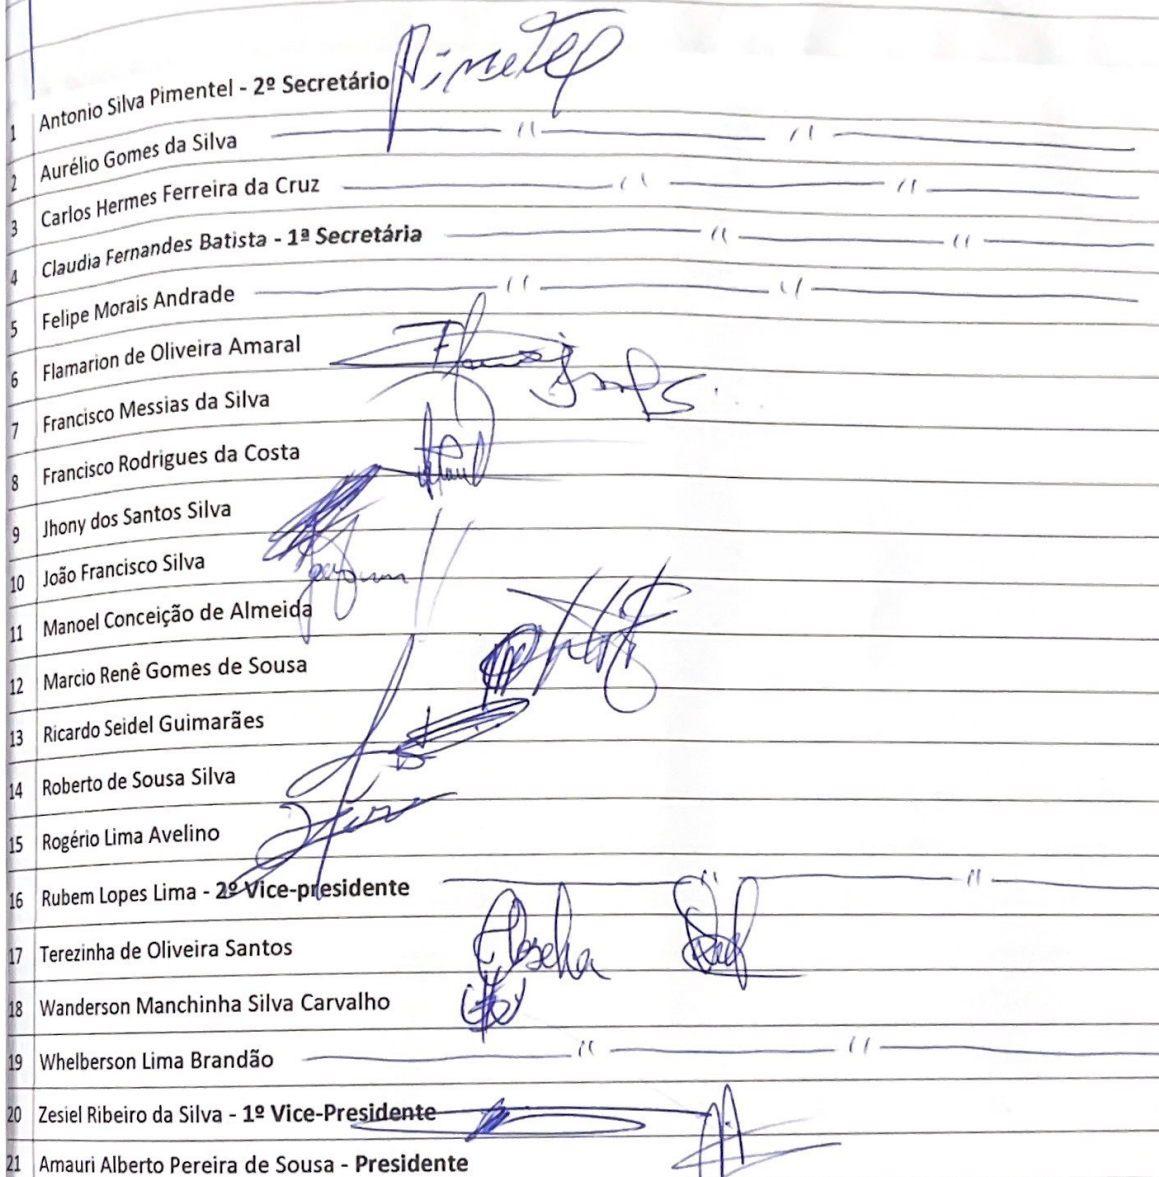 1 Antonio Silva Pimentel - 2º Secretário Pimetel
2 Aurélio Gomes da Silva
3 Carlos Hermes Ferreira da Cruz
4 Claudia Fernandes Batista - 1ª Secretária
5 Felipe Morais Andrade
6 Flamarion de Oliveira Amaral
7 Francisco Messias da Silva
8 Francisco Rodrigues da Costa
9 Jhony dos Santos Silva
10 João Francisco Silva
11 Manoel Conceição de Almeida
12 Marcio Renê Gomes de Sousa
13 Ricardo Seidel Guimarães
14 Roberto de Sousa Silva
15 Rogério Lima Avelino
16 Rubem Lopes Lima - 2º Vice-presidente
17 Terezinha de Oliveira Santos
18 Wanderson Manchinha Silva Carvalho
19 Whelberson Lima Brandão
20 Zesiel Ribeiro da Silva - 1º Vice-Presidente
21 Amauri Alberto Pereira de Sousa - Presidente